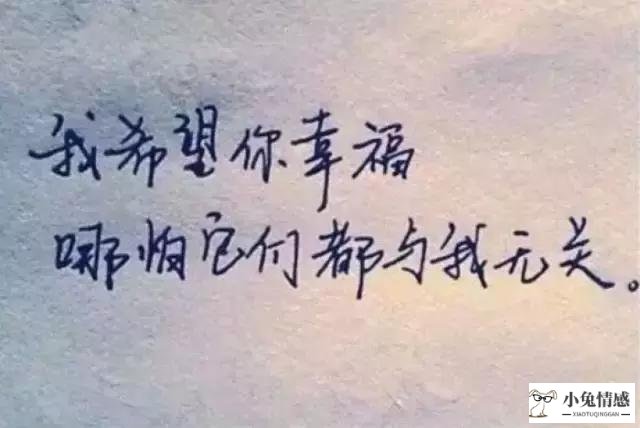 我希望你幸福
哪怕它们都与我无关。
小兔情感
XIAOTUQINGGAN